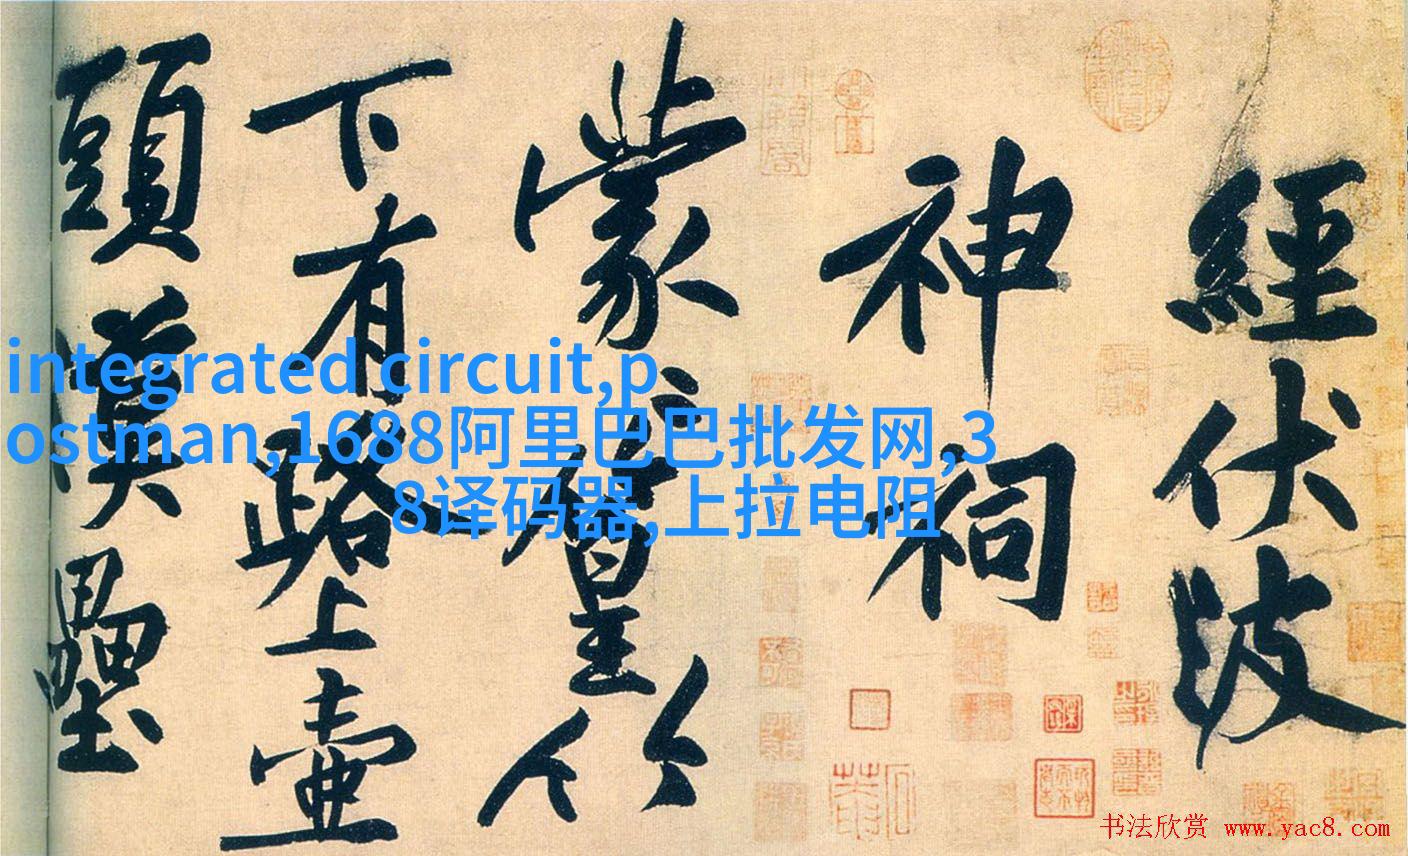 經伏波
神祠
蒙〻篁竹
下有路上壺
頭漢壘
integrated circuit,p
ostman,1688阿里巴巴批发网,3
8译码器,上拉电阻
书法欣赏 www.yac8.com